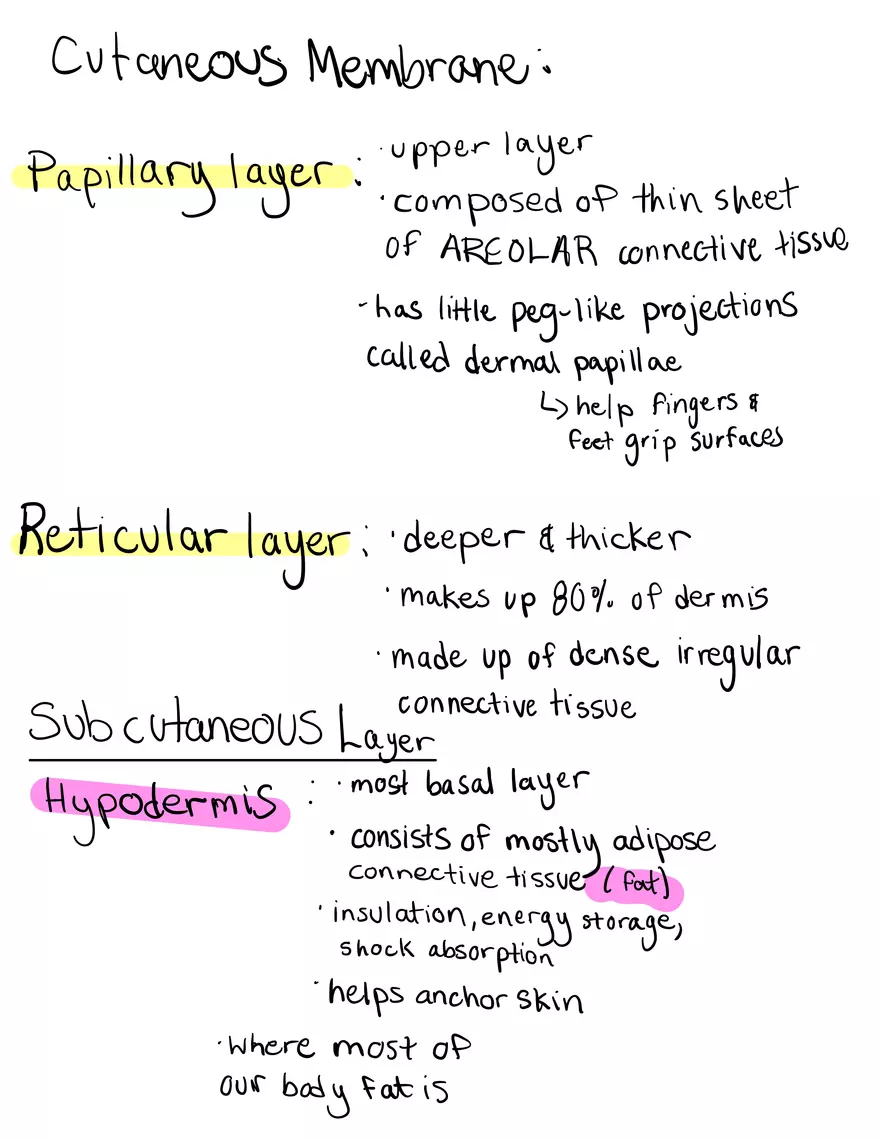 Cutaneous Membrane:
Papillary layer:
· upper layer
· composed of thin sheet
of AREOLAR connective tissue
- has little peg-like projections
called dermal papillae
↳ help fingers &
feet grip surfaces
Reticular layer:
· deeper & thicker
· makes up 80% of dermis
· made up of dense irregular
connective tissue
Subcutaneous Layer
Hypodermis:
· most basal layer
· consists of mostly adipose
connective tissue (fat)
· insulation, energy storage,
shock absorption
· helps anchor skin
· where most of
our body fat is